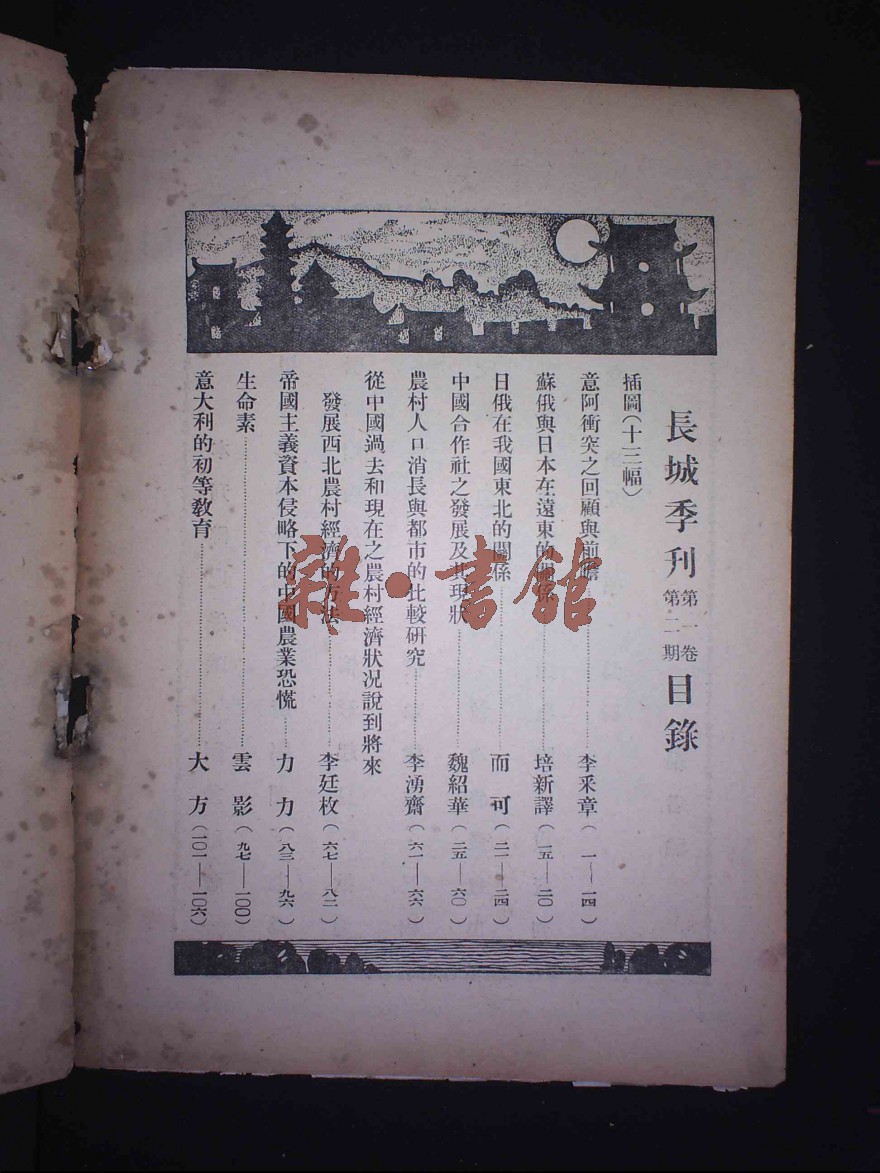 長城季刊 第一卷 第二期 目錄
插圖(十三幅)
意阿衝突之回顧與前瞻……李釆章(一—一四)
蘇俄與日本在遠東的關係……培新譯(一五—二〇)
日俄在我國東北的關係……而可(二一—二四)
中國合作社之發展及其現狀……魏紹華(二五—六〇)
農村人口消長與都市的比較研究……李湧齋(六一—六六)
從中國過去和現在之農村經濟狀况說到將來
發展西北農村經濟的方法……李廷枚(六七—八二)
帝國主義資本侵略下的中國農業恐慌……力力(八三—九六)
生命素……雲影(九七—一〇〇)
意大利的初等教育……大方(一〇一—一〇六)
雜·書館